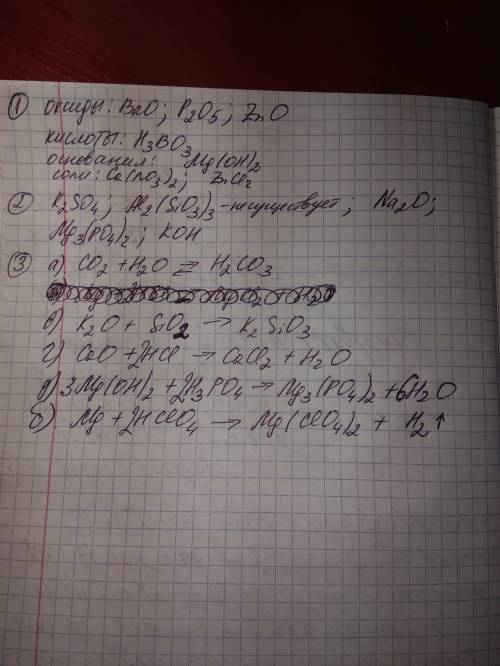 ① оксиды: BaO; P₂O₅; ZnO
кислоты: H₃BO₃
основания: Mg(OH)₂
соли: Ca(NO₃)₂; ZnCl₂
② K₂SO₄; Al₂(SiO₃)₃ - несуществует; Na₂O;
Mg₃(PO₄)₂; KOH
③ а) CO₂ + H₂O ⇄ H₂CO₃
в) K₂O + SiO₂ → K₂SiO₃
г) CaO + 2HCl → CaCl₂ + H₂O
д) 3Mg(OH)₂ + 2H₃PO₄ → Mg₃(PO₄)₂ + 6H₂O
б) Mg + 2HClO₄ → Mg(ClO₄)₂ + H₂↑